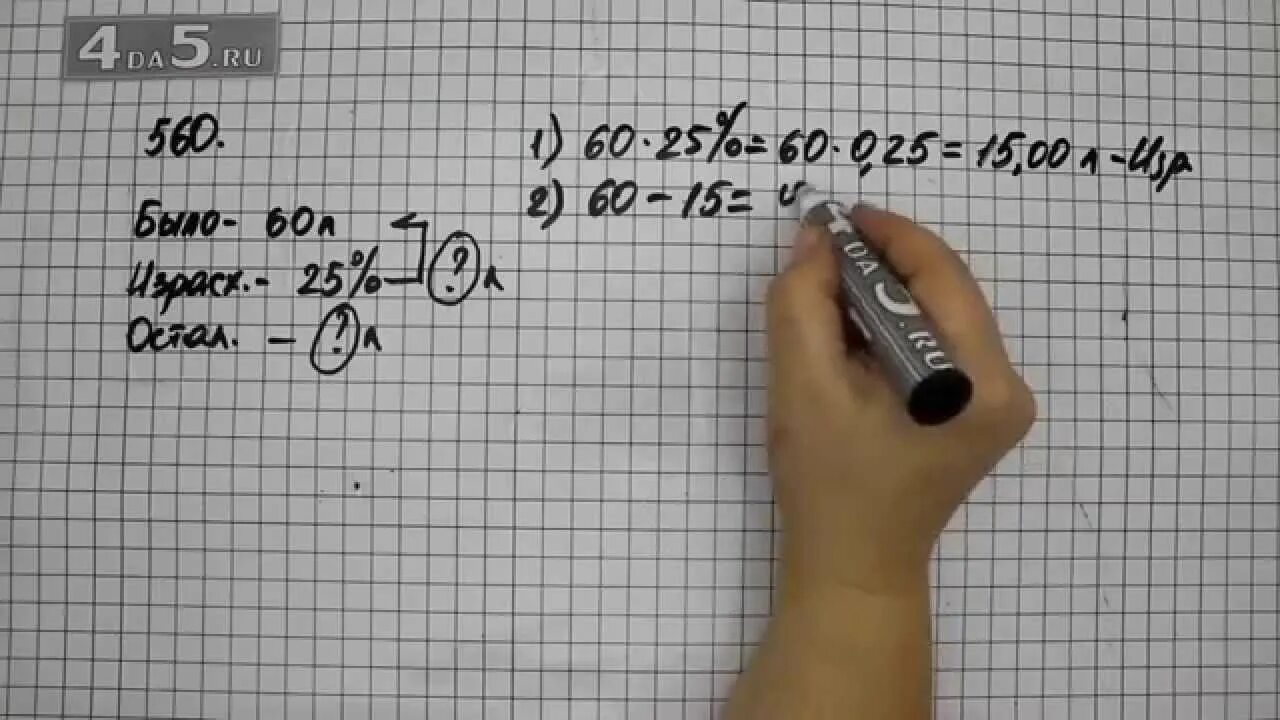 4DA5.RU
560.
Было - 60 л
Израсх. - 25% ? л
Остал. - ? л
1) 60 · 25% = 60 · 0,25 = 15,00 л - Изр
2) 60 - 15 =
DA5.RU